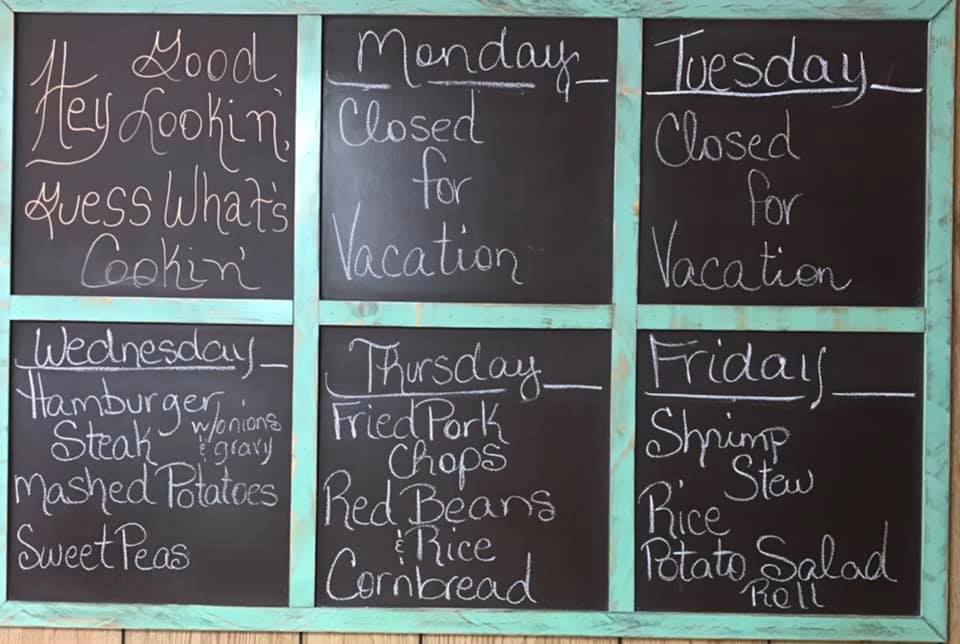 Hey Good
Lookin',
Guess What's
Cookin'
Monday
Closed
for
Vacation
Tuesday
Closed
for
Vacation
Wednesday
Hamburger
Steak w/onions
& gravy
Mashed Potatoes
Sweet Peas
Thursday
Fried Pork
Chops
Red Beans
& Rice
Cornbread
Friday
Shrimp
Stew
Rice
Potato Salad
Roll